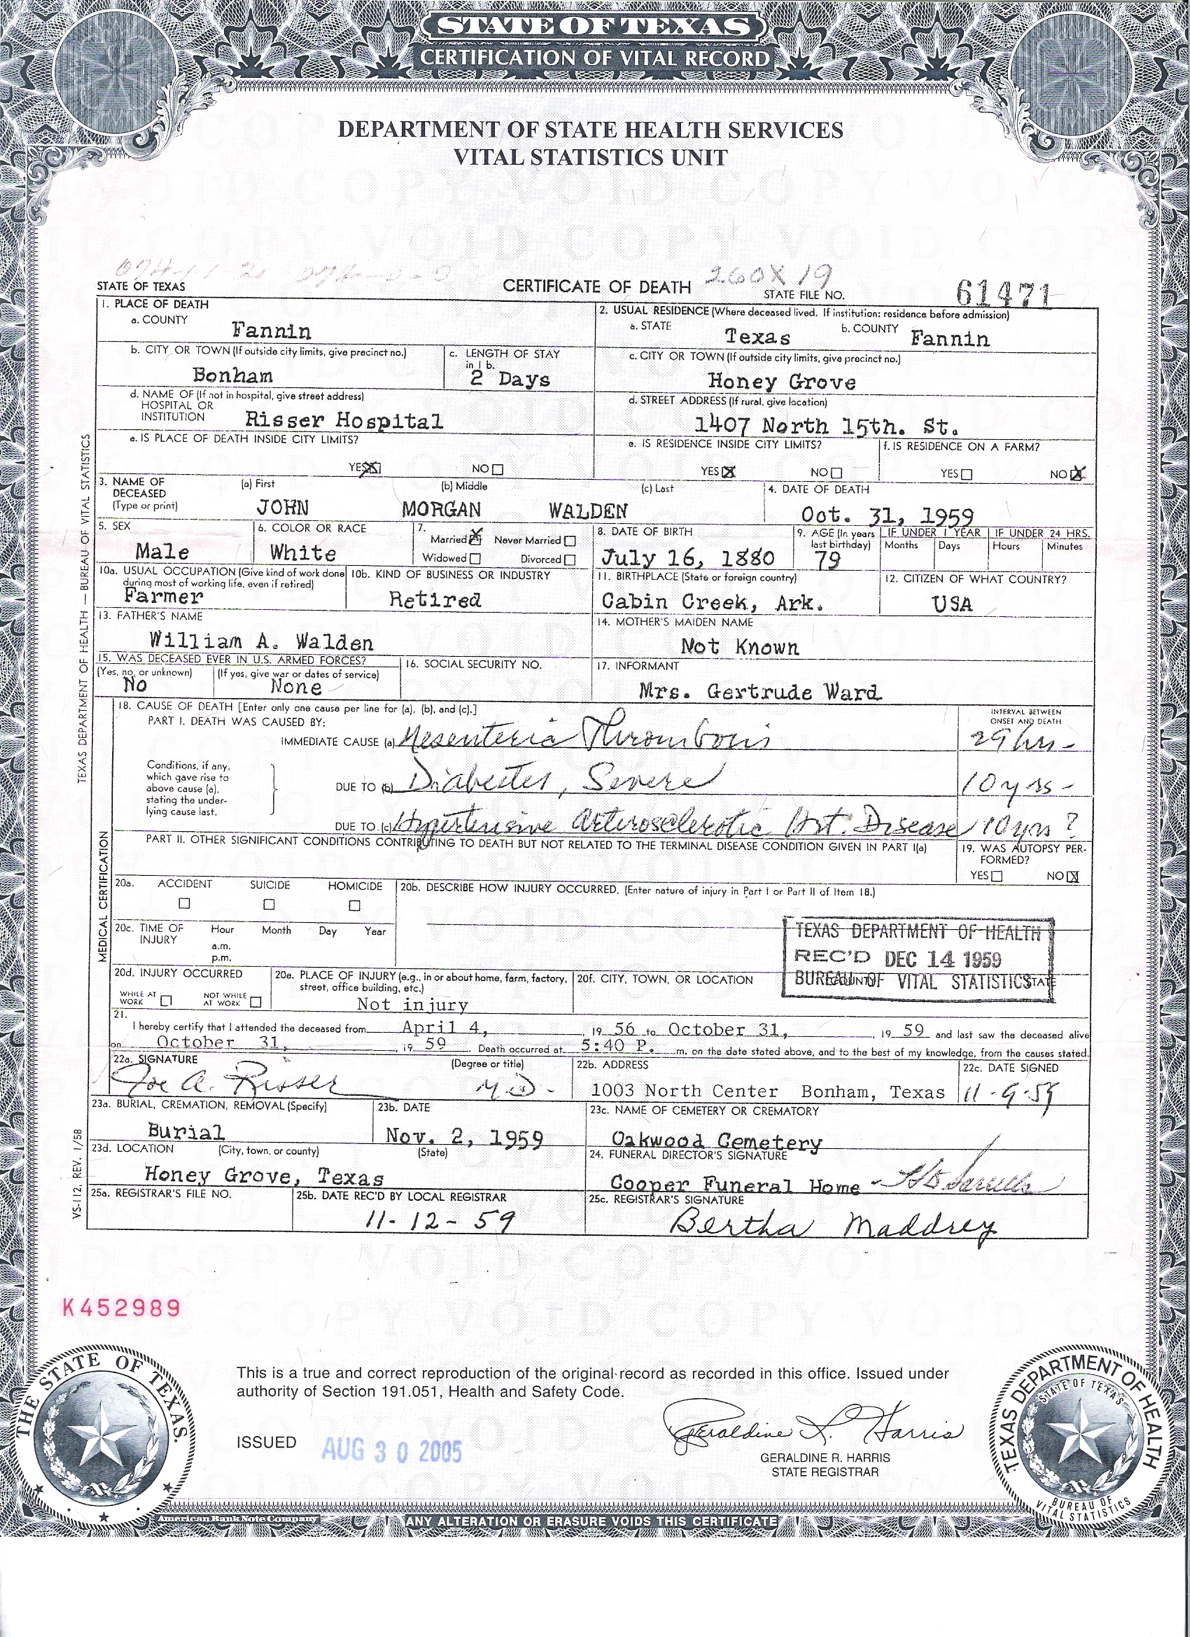 STATE OF TEXAS
CERTIFICATION OF VITAL RECORD
DEPARTMENT OF STATE HEALTH SERVICES
VITAL STATISTICS UNIT
STATE OF TEXAS
CERTIFICATE OF DEATH
260X 19
STATE FILE NO.
61471
1. PLACE OF DEATH
a. COUNTY
Fannin
2. USUAL RESIDENCE (Where deceased lived. If institution: residence before admission)
a. STATE
Texas
b. COUNTY
Fannin
b. CITY OR TOWN (If outside city limits, give precinct no.)
Bonham
c. LENGTH OF STAY
in 1 b.
2 Days
c. CITY OR TOWN (If outside city limits, give precinct no.)
Honey Grove
d. NAME OF (If not in hospital, give street address)
HOSPITAL OR
INSTITUTION
Risser Hospital
d. STREET ADDRESS (If rural, give location)
1407 North 15th. St.
e. IS PLACE OF DEATH INSIDE CITY LIMITS?
YES X NO
e. IS RESIDENCE INSIDE CITY LIMITS?
YES X NO
f. IS RESIDENCE ON A FARM?
YES NO X
3. NAME OF
DECEASED
(Type or print)
(a) First (b) Middle (c) Last
JOHN MORGAN WALDEN
4. DATE OF DEATH
Oct. 31, 1959
5. SEX
Male
6. COLOR OR RACE
White
7.
Married X Never Married
Widowed Divorced
8. DATE OF BIRTH
July 16, 1880
9. AGE (In years
last birthday)
79
IF UNDER 1 YEAR
Months Days
IF UNDER 24 HRS.
Hours Minutes
10a. USUAL OCCUPATION (Give kind of work done
during most of working life, even if retired)
Farmer
10b. KIND OF BUSINESS OR INDUSTRY
Retired
11. BIRTHPLACE (State or foreign country)
Cabin Creek, Ark.
12. CITIZEN OF WHAT COUNTRY?
USA
13. FATHER'S NAME
William A. Walden
14. MOTHER'S MAIDEN NAME
Not Known
15. WAS DECEASED EVER IN U.S. ARMED FORCES?
(Yes, no, or unknown) (If yes, give war or dates of service)
No None
16. SOCIAL SECURITY NO.
17. INFORMANT
Mrs. Gertrude Ward
18. CAUSE OF DEATH [Enter only one cause per line for (a), (b), and (c).]
PART I. DEATH WAS CAUSED BY:
INTERVAL BETWEEN
ONSET AND DEATH
IMMEDIATE CAUSE (a) Mesenteria Thrombosis 29 hrs -
Conditions, if any,
which gave rise to
above cause (a),
stating the under-
lying cause last.
DUE TO (b) Diabetes, Severe 10 yrs -
DUE TO (c) Hypertensive Arteriosclerotic Hrt. Disease 10 yrs ?
PART II. OTHER SIGNIFICANT CONDITIONS CONTRIBUTING TO DEATH BUT NOT RELATED TO THE TERMINAL DISEASE CONDITION GIVEN IN PART I(a)
19. WAS AUTOPSY PER-
FORMED?
YES NO X
20a. ACCIDENT SUICIDE HOMICIDE
20b. DESCRIBE HOW INJURY OCCURRED. (Enter nature of injury in Part I or Part II of Item 18.)
20c. TIME OF
INJURY
Hour Month Day Year
a.m.
p.m.
TEXAS DEPARTMENT OF HEALTH
REC'D DEC 14 1959
BUREAU OF VITAL STATISTICS
20d. INJURY OCCURRED
WHILE AT
WORK
NOT WHILE
AT WORK
20e. PLACE OF INJURY (e.g., in or about home, farm, factory,
street, office building, etc.)
Not injury
20f. CITY, TOWN, OR LOCATION
COUNTY STATE
21.
I hereby certify that I attended the deceased from April 4, 19 56 to October 31, 19 59 and last saw the deceased alive
on October 31, 19 59 Death occurred at 5:40 P. m. on the date stated above, and to the best of my knowledge, from the causes stated.
22a. SIGNATURE (Degree or title)
Joe A. Risser M.D-
22b. ADDRESS
1003 North Center Bonham, Texas
22c. DATE SIGNED
11-9-59
23a. BURIAL, CREMATION, REMOVAL (Specify)
Burial
23b. DATE
Nov. 2, 1959
23c. NAME OF CEMETERY OR CREMATORY
Oakwood Cemetery
23d. LOCATION (City, town, or county) (State)
Honey Grove, Texas
24. FUNERAL DIRECTOR'S SIGNATURE
Cooper Funeral Home -
25a. REGISTRAR'S FILE NO.
25b. DATE REC'D BY LOCAL REGISTRAR
11-12-59
25c. REGISTRAR'S SIGNATURE
Bertha Maddrey
TEXAS DEPARTMENT OF HEALTH — BUREAU OF VITAL STATISTICS
MEDICAL CERTIFICATION
VS-112, REV. 1/58
K452989
This is a true and correct reproduction of the original record as recorded in this office. Issued under
authority of Section 191.051, Health and Safety Code.
ISSUED AUG 30 2005
Geraldine R. Harris
GERALDINE R. HARRIS
STATE REGISTRAR
THE STATE OF TEXAS.
TEXAS DEPARTMENT OF HEALTH
STATE OF TEXAS
BUREAU OF
VITAL STATISTICS
American Bank Note Company
ANY ALTERATION OR ERASURE VOIDS THIS CERTIFICATE